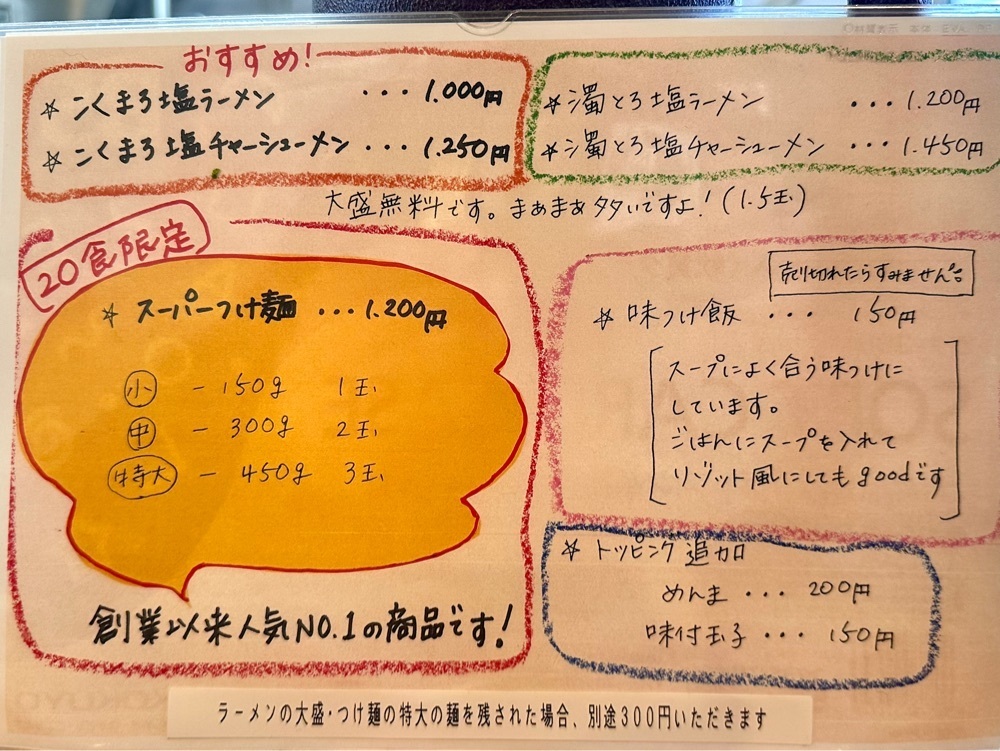 おすすめ!
☆こくまろ塩ラーメン ・・・1.000円
☆こくまろ塩チャーシューメン・・・1.250円
☆濁とろ塩ラーメン ・・・1.200円
☆濁とろ塩チャーシューメン ・・・1.450円
大盛無料です。まあまあ多いですよ!(1.5玉)
20食限定
☆スーパーつけ麺 ・・・1.200円
小 - 150g 1玉
中 - 300g 2玉
特大 - 450g 3玉
創業以来人気NO.1の商品です!
売り切れたらすみません
☆味つけ飯 ・・・ 150円
スープによく合う味つけに
しています。
ごはんにスープを入れて
リゾット風にしてもgoodです
☆トッピング追加
めんま ・・・ 200円
味付玉子 ・・・ 150円
ラーメンの大盛・つけ麺の特大の麺を残された場合、別途300円いただきます